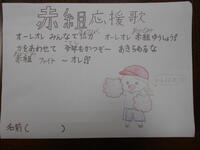 赤組応援歌
オーレオレ みんなで 協力 オーレオレ 赤組ゆうしょう
力をあわせて 今年もかつぞー あきらめるな
赤組 ファイト 〜 オレ
名前（　　　）